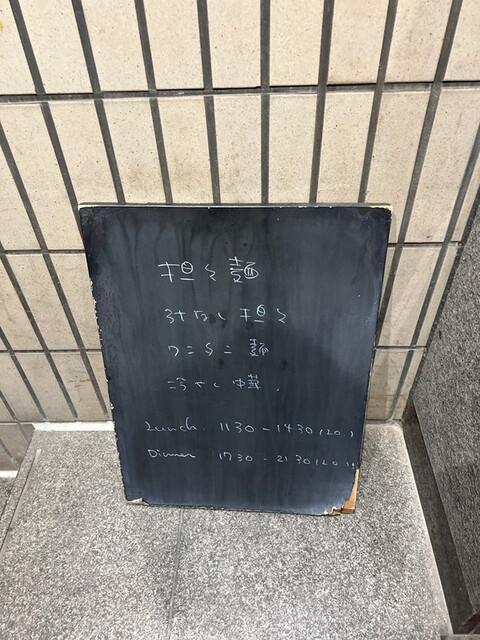 担々麺
汁なし担々
ワンタン麺
冷やし中華.
Lunch. 1130 - 1430 (L.O.)
Dinner 1730 - 2130 (L.O.)